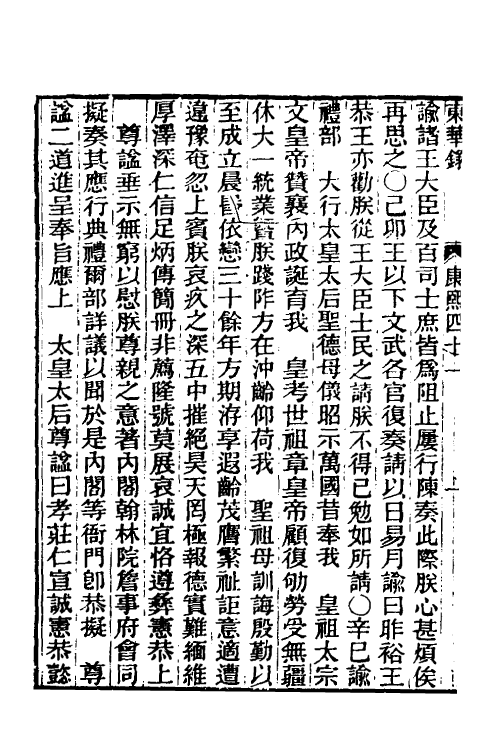 東華錄 康熙四十一
諭諸王大臣及百司士庶皆爲阻止屢行陳奏此際朕心甚煩俟
再思之○己卯王以下文武各官復奏請以日易月諭曰昨裕王
恭王亦勸朕從王大臣士民之請朕不得已勉如所請○辛巳諭
禮部 大行太皇太后聖德母儀昭示萬國昔奉我 皇祖太宗
文皇帝贊襄內政誕育我 皇考世祖章皇帝顧復劬勞受無疆
休大一統業曁朕踐阼方在沖齡仰荷我 聖祖母訓誨殷勤以
至成立晨昏依戀三十餘年方期洊享遐齡茂膺繁祉詎意適遭
違豫奄忽上賓朕哀疚之深五中摧絕昊天罔極報德實難緬維
厚澤深仁信足炳傳簡冊非薦隆號莫展哀誠宜恪遵彝憲恭上
尊諡垂示無窮以慰朕尊親之意著內閣翰林院詹事府會同
擬奏其應行典禮爾部詳議以聞於是內閣等衙門卽恭擬 尊
諡二道進呈奉旨應上 太皇太后尊諡曰孝莊仁宣誠憲恭懿